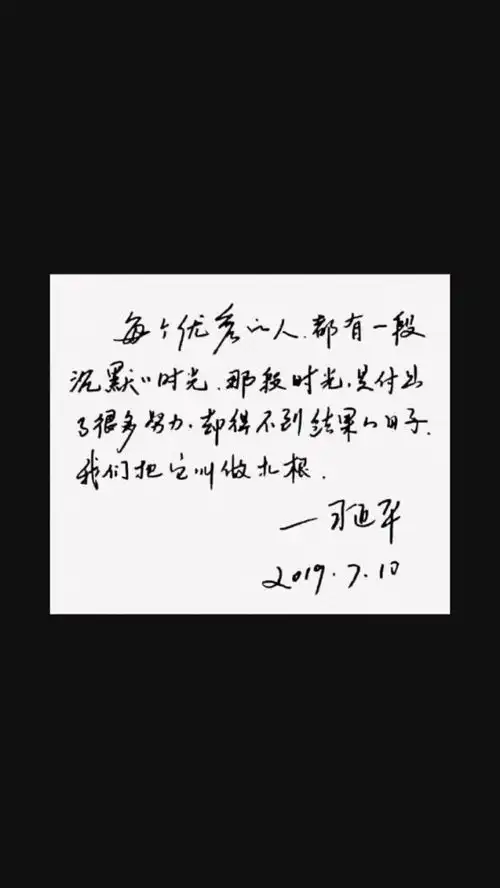 每个优秀的人.都有一段
沉默的时光.那段时光,是付出
了很多努力,却得不到结果的日子.
我们把它叫做扎根.
—习近平
2019.7.10